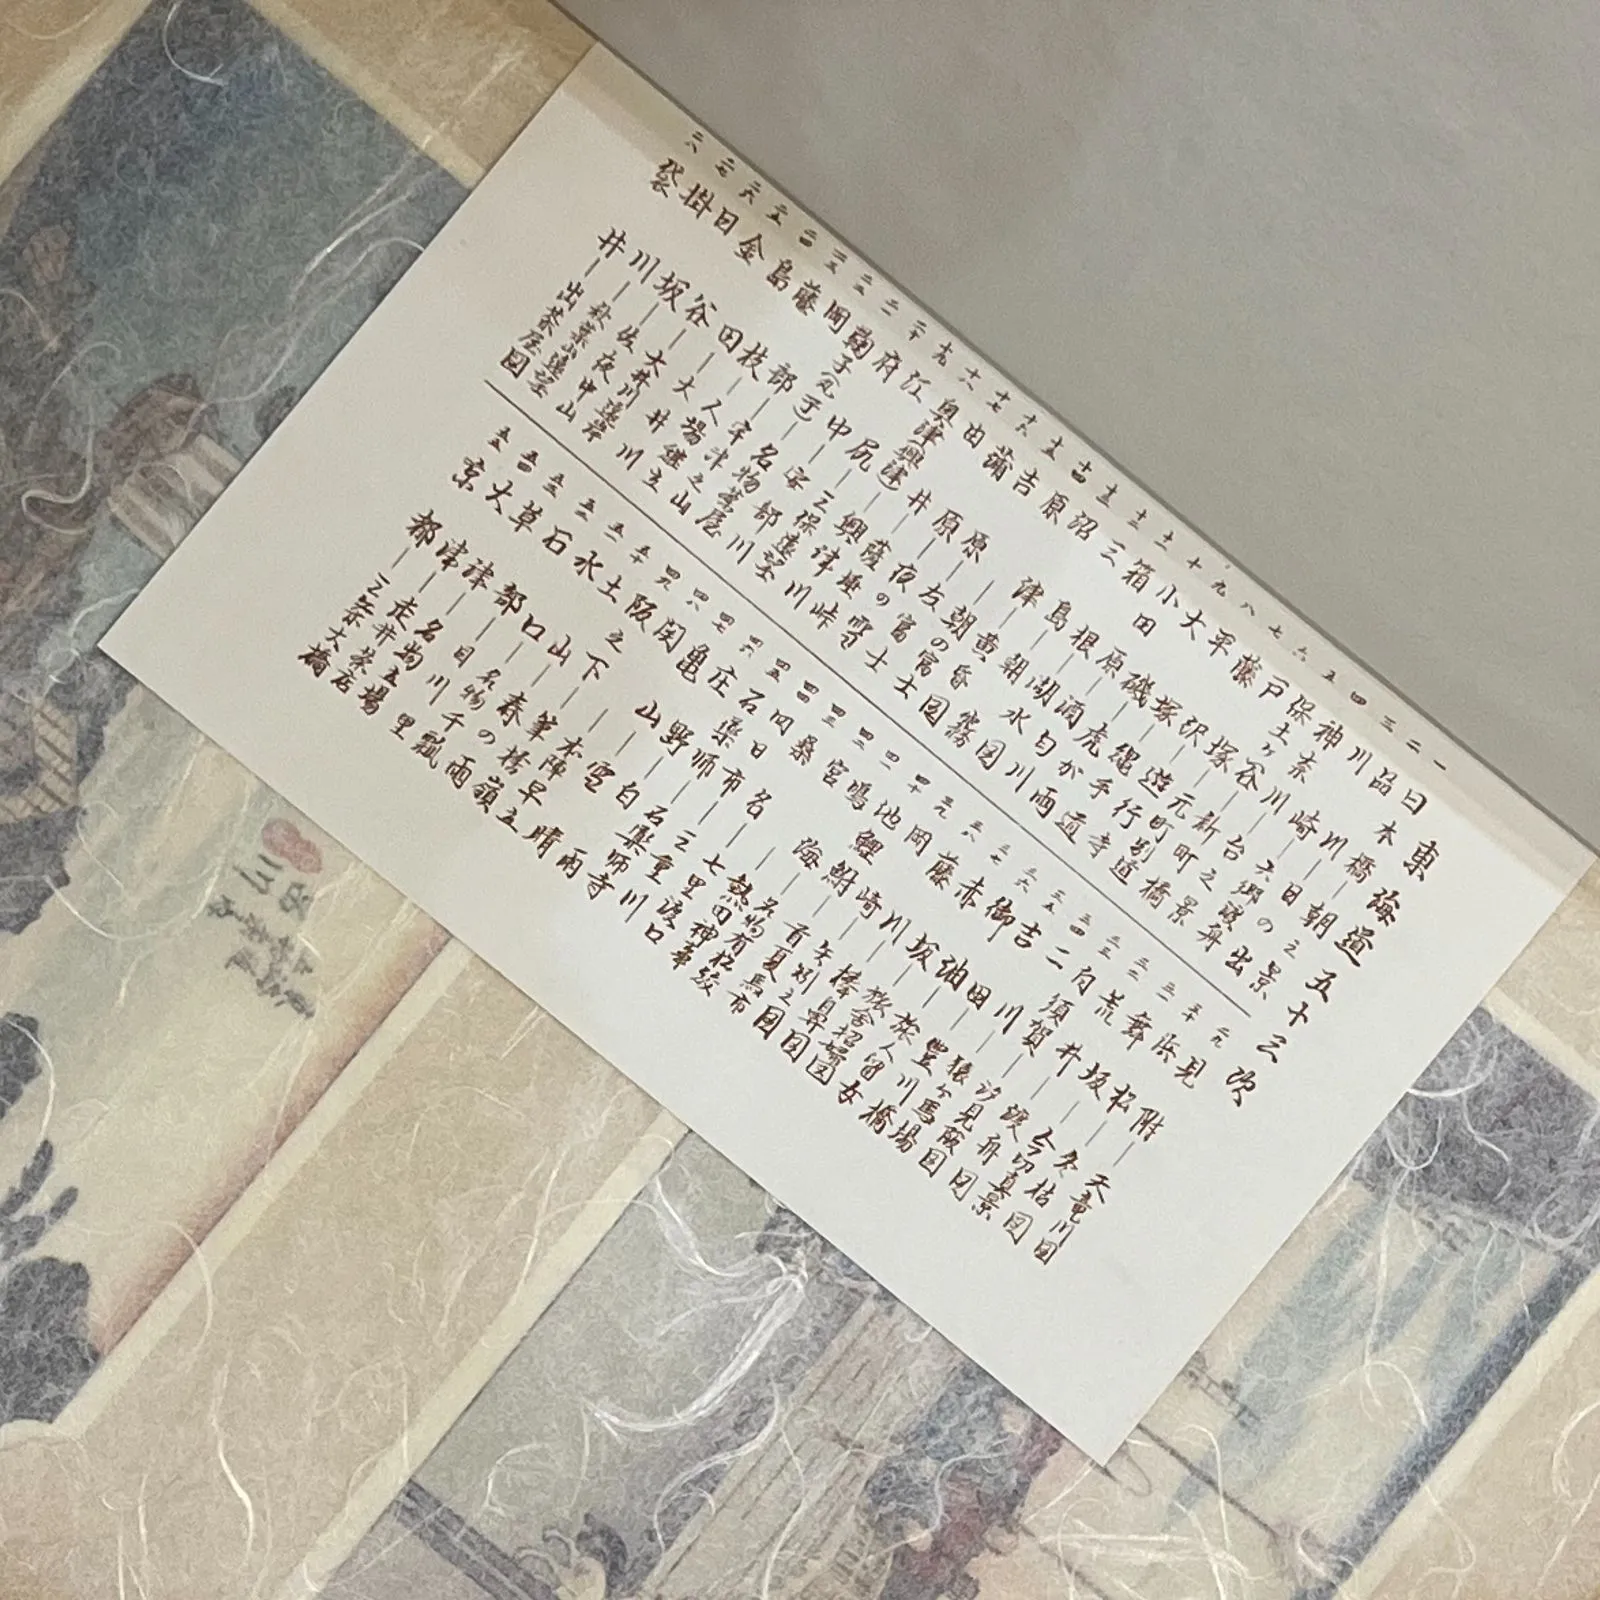 東海道五十三次
一 日本橋―朝之景
二 品川―日の出
三 川崎―六郷の渡舟
四 神奈川―台之景
五 保土ヶ谷―新町橋
六 戸塚―元町別道
七 藤沢―遊行寺
八 平塚―縄手道
九 大磯―虎が雨
十 小田原―酒匂川
十一 箱根―湖水図
十二 三島―朝霧
十三 沼津―黄昏図
十四 原―朝の富士
十五 吉原―左富士
十六 蒲原―夜の雪
十七 由井―薩埵峠
十八 奥津(興津)―興津川
十九 江尻―三保遠望
二十 府中―安部川
二一 鞠子(丸子)―名物茶屋
二二 岡部―宇津之山
二三 藤枝―人場継立
二四 島田―大井川
二五 金谷―大井川遠岸
二六 日坂―佐夜中山
二七 掛川―秋葉山遠望
二八 袋井―出茶屋図
二九 見附―天竜川図
三十 浜松―冬枯図
三一 舞坂―今切真景
三二 荒井―渡舟図
三三 白須賀―汐見阪図
三四 二川―猿ヶ馬場
三五 吉田―豊川橋
三六 御油―旅人留女
三七 赤坂―旅舎招婦図
三八 藤川―棒鼻図
三九 岡崎―矢矧之
四十 池鯉鮒―首夏馬市
四一 鳴海―名物有松絞
四二 宮―熱田神事
四三 桑名―七里渡口
四四 四日市―三重川
四五 石薬師―石薬師寺
四六 庄野―白雨
四七 亀山―雪晴
四八 関―本陣早立
四九 阪之下―筆捨嶺
五十 土山―春の雨
五一 水口―名物干瓢
五二 石部―目川里
五三 草津―名物立場
五四 大津―走井茶店
五五 京都―三条大橋